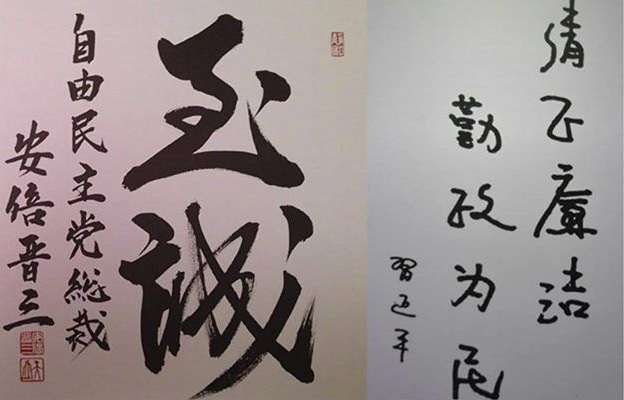 至誠
自由民主党総裁
安倍晋三
清正廉洁
勤政为民
習近平